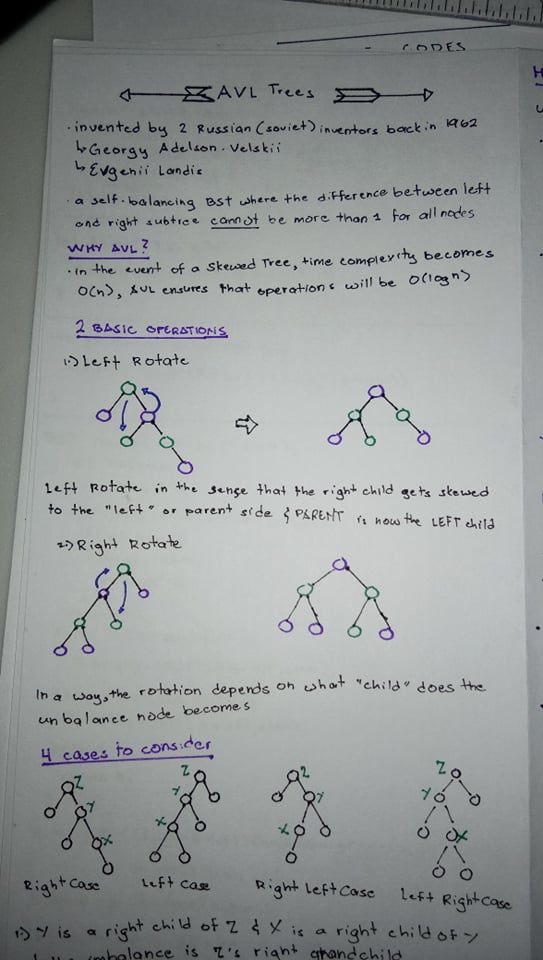 - CODES
AVL Trees
· invented by 2 Russian (soviet) inventors back in 1962
↳ Georgy Adelson-Velskii
↳ Evgenii Landis
· a self-balancing BST where the difference between left
and right subtree cannot be more than 1 for all nodes
WHY AVL?
· In the event of a skewed Tree, time complexity becomes
O(n), AVL ensures that operations will be O(log n)
2 BASIC OPERATIONS
1.) Left Rotate
Left Rotate in the sense that the right child gets skewed
to the "left" or parent side & PARENT is now the LEFT child
2.) Right Rotate
In a way, the rotation depends on what "child" does the
unbalance node becomes
4 cases to consider
Z Y X
Z Y X
Z Y X
Z Y X
Right Case Left Case Right Left Case Left Right Case
1.) Y is a right child of Z & X is a right child of Y
imbalance is Z's right grandchild